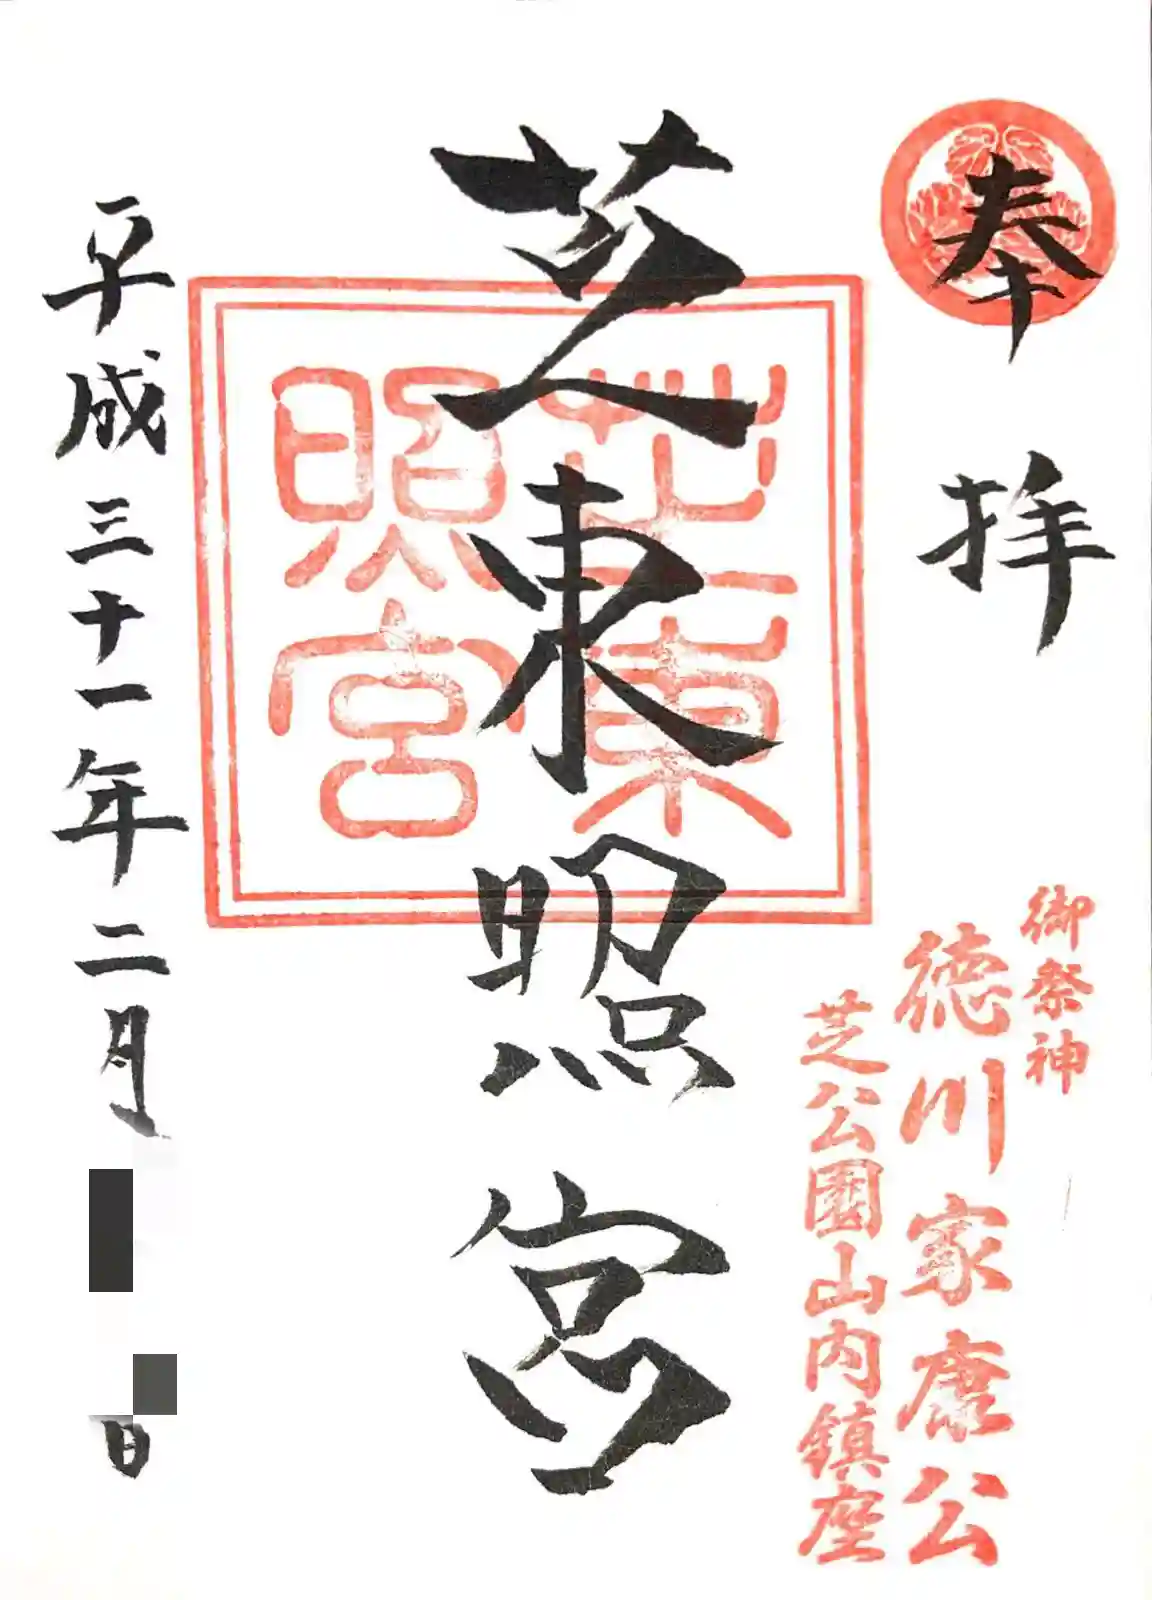 奉拝
御祭神
徳川家康公
芝公園山内鎮座
芝東照宮
芝東
照宮
平成三十一年二月
日